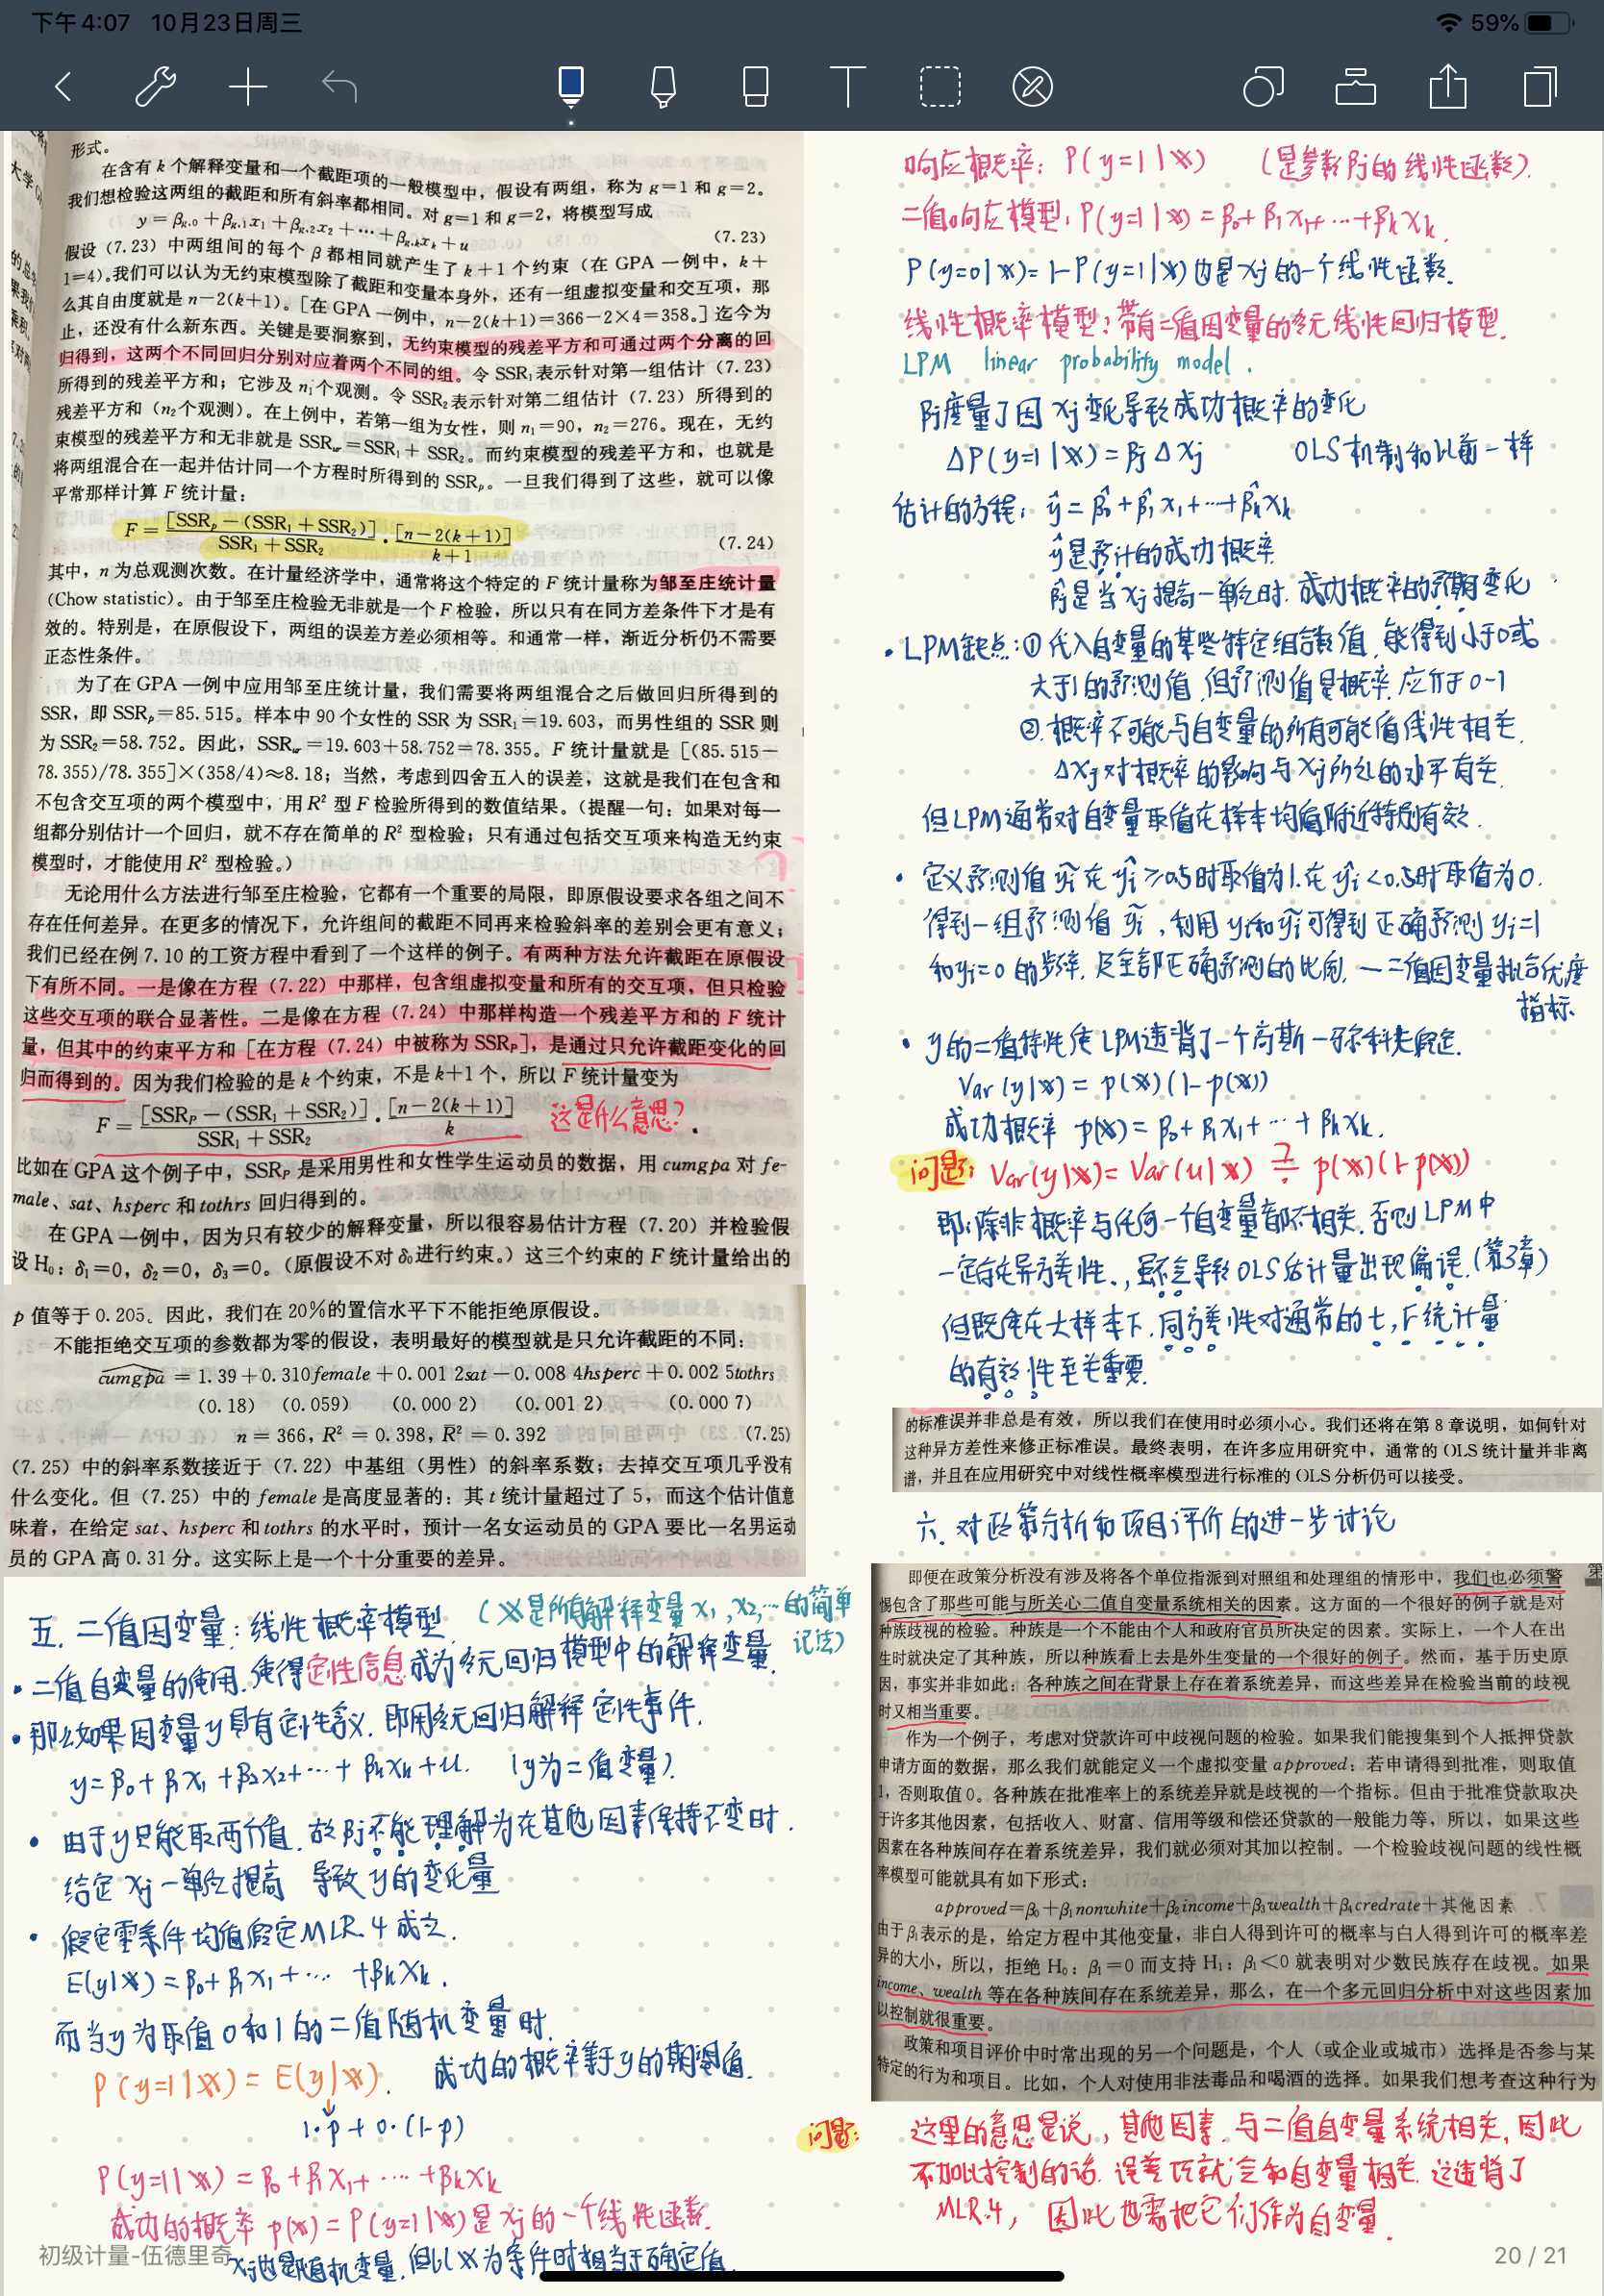 下午4:07 10月23日周三
59%
形式。
在含有 k 个解释变量和一个截距项的一般模型中，假设有两组，称为 g=1 和 g=2。
我们想检验这两组的截距和所有斜率都相同。对 g=1 和 g=2，将模型写成
y=β_{g,0}+β_{g,1}x₁+β_{g,2}x₂+⋯+β_{g,k}x_k+u (7.23)
假设（7.23）中两组间的每个 β 都相同就产生了 k+1 个约束（在 GPA 一例中，k+
1=4）。我们可以认为无约束模型除了截距和变量本身外，还有一组虚拟变量和交互项，那
么其自由度就是 n−2(k+1)。[在 GPA 一例中，n−2(k+1)=366−2×4=358。] 迄今为
止，还没有什么新东西。关键是要洞察到，无约束模型的残差平方和可通过两个分离的回
归得到，这两个不同回归分别对应着两个不同的组。令 SSR₁ 表示针对第一组估计（7.23）
所得到的残差平方和；它涉及 n₁个观测。令 SSR₂ 表示针对第二组估计（7.23）所得到的
残差平方和（n₂个观测）。在上例中，若第一组为女性，则 n₁=90，n₂=276。现在，无约
束模型的残差平方和无非就是 SSR_ur=SSR₁+SSR₂。而约束模型的残差平方和，也就是
将两组混合在一起并估计同一个方程时所得到的 SSR_p。一旦我们得到了这些，就可以像
平常那样计算 F 统计量：
F=[SSR_p−(SSR₁+SSR₂)]/(SSR₁+SSR₂)·[n−2(k+1)]/(k+1) (7.24)
其中，n 为总观测次数。在计量经济学中，通常将这个特定的 F 统计量称为邹至庄统计量
(Chow statistic)。由于邹至庄检验无非就是一个 F 检验，所以只有在同方差条件下才是有
效的。特别是，在原假设下，两组的误差方差必须相等。和通常一样，渐近分析仍不需要
正态性条件。
为了在 GPA 一例中应用邹至庄统计量，我们需要将两组混合之后做回归所得到的
SSR，即 SSR_p=85.515。样本中 90 个女性的 SSR 为 SSR₁=19.603，而男性组的 SSR 则
为 SSR₂=58.752。因此，SSR_ur=19.603+58.752=78.355。F 统计量就是 [(85.515−
78.355)/78.355]×(358/4)≈8.18；当然，考虑到四舍五入的误差，这就是我们在包含和
不包含交互项的两个模型中，用 R² 型 F 检验所得到的数值结果。（提醒一句：如果对每一
组都分别估计一个回归，就不存在简单的 R² 型检验；只有通过包括交互项来构造无约束
模型时，才能使用 R² 型检验。）
无论用什么方法进行邹至庄检验，它都有一个重要的局限，即原假设要求各组之间不
存在任何差异。在更多的情况下，允许组间的截距不同再来检验斜率的差别会更有意义；
我们已经在例 7.10 的工资方程中看到了一个这样的例子。有两种方法允许截距在原假设
下有所不同。一是像在方程（7.22）中那样，包含组虚拟变量和所有的交互项，但只检验
这些交互项的联合显著性。二是像在方程（7.24）中那样构造一个残差平方和的 F 统计
量，但其中的约束平方和［在方程（7.24）中被称为 SSR_P］，是通过只允许截距变化的回
归而得到的。因为我们检验的是 k 个约束，不是 k+1 个，所以 F 统计量变为
F=[SSR_P−(SSR₁+SSR₂)]/(SSR₁+SSR₂)·[n−2(k+1)]/k 这是什么意思？
比如在 GPA 这个例子中，SSR_P 是采用男性和女性学生运动员的数据，用 cumgpa 对 fe-
male、sat、hsperc 和 tothrs 回归得到的。
在 GPA 一例中，因为只有较少的解释变量，所以很容易估计方程（7.20）并检验假
设 H₀：δ₁=0，δ₂=0，δ₃=0。（原假设不对 δ₀进行约束。）这三个约束的 F 统计量给出的
p 值等于 0.205。因此，我们在 20%的置信水平下不能拒绝原假设。
不能拒绝交互项的参数都为零的假设，表明最好的模型就是只允许截距的不同：
cumgpa = 1.39+0.310female+0.001 2sat−0.008 4hsperc+0.002 5tothrs
(0.18) (0.059) (0.000 2) (0.001 2) (0.000 7)
n=366, R²=0.398, R̄²=0.392 (7.25)
(7.25) 中的斜率系数接近于（7.22）中基组（男性）的斜率系数；去掉交互项几乎没有
什么变化。但（7.25）中的 female 是高度显著的：其 t 统计量超过了 5，而这个估计值意
味着，在给定 sat、hsperc 和 tothrs 的水平时，预计一名女运动员的 GPA 要比一名男运动
员的 GPA 高 0.31 分。这实际上是一个十分重要的差异。
五. 二值因变量：线性概率模型. （𝕏是所有解释变量x₁,x₂,…的简单
记法）
• 二值自变量的使用. 使得定性信息成为多元回归模型中的解释变量.
• 那么如果因变量y具有定性含义. 即用多元回归解释定性事件.
y=β₀+β₁x₁+β₂x₂+⋯+βₖxₖ+u. （y为二值变量）.
• 由于y只能取两个值. 故βj不能理解为在其他因素保持不变时.
给定xj一单位提高 导致y的变化量
• 假定零条件均值假定MLR.4成立.
E(y|𝕏)=β₀+β₁x₁+⋯+βₖxₖ.
而当y为取值0和1的二值随机变量时.
P(y=1|𝕏)=E(y|𝕏). 成功的概率等于y的期望值.
1·p+0·(1-p)
P(y=1|𝕏)=β₀+β₁x₁+⋯+βₖxₖ
成功的概率 p(𝕏)=P(y=1|𝕏)是xj的一个线性函数.
xj也是随机变量. 但以𝕏为条件时相当于确定值.
初级计量-伍德里奇
响应概率：P(y=1|𝕏) （是参数βj的线性函数）.
二值响应模型：P(y=1|𝕏)=β₀+β₁x₁+⋯+βₖxₖ.
P(y=0|𝕏)=1-P(y=1|𝕏)也是xj的一个线性函数.
线性概率模型：带有二值因变量的多元线性回归模型.
LPM linear probability model.
βj度量了因xj变化导致成功概率的变化
ΔP(y=1|𝕏)=βjΔxj OLS机制和以前一样
估计的方程：ŷ=β̂₀+β̂₁x₁+⋯+β̂ₖxₖ
ŷ是预计的成功概率
β̂j是当xj提高一单位时. 成功概率的预期变化
• LPM缺点：①代入自变量的某些特定组合数值，能得到小于0或
大于1的预测值，但预测值是概率. 应介于0-1
②. 概率不可能与自变量的所有可能值线性相关.
Δxj对概率的影响与xj所处的水平有关.
但LPM通常对自变量取值在样本均值附近特别有效.
• 定义预测值ỹi在ŷi≥0.5时取值为1.在ŷi<0.5时取值为0.
得到一组预测值ỹi，利用yi和ỹi可得到正确预测yi=1
和yi=0的频率. 及全部正确预测的比例. —二值因变量拟合优度
指标.
• y的二值特性使LPM违背了一个高斯-马尔科夫假定.
Var(y|𝕏)=p(𝕏)(1-p(𝕏))
成功概率 p(𝕏)=β₀+β₁x₁+⋯+βₖxₖ.
问题：Var(y|𝕏)=Var(u|𝕏)≟p(𝕏)(1-p(𝕏))
即：除非概率与任何一个自变量都不相关. 否则LPM中
一定存在异方差性. 虽不会导致OLS估计量出现偏误.(第3章)
但既使在大样本下. 同方差性对通常的t，F统计量
的有效性至关重要.
的标准误并非总是有效，所以我们在使用时必须小心。我们还将在第 8 章说明，如何针对
这种异方差性来修正标准误。最终表明，在许多应用研究中，通常的 OLS 统计量并非离
谱，并且在应用研究中对线性概率模型进行标准的 OLS 分析仍可以接受。
六. 对政策分析和项目评价的进一步讨论
即便在政策分析没有涉及将各个单位指派到对照组和处理组的情形中，我们也必须警
惕包含了那些可能与所关心二值自变量系统相关的因素。这方面的一个很好的例子就是对
种族歧视的检验。种族是一个不能由个人和政府官员所决定的因素。实际上，一个人在出
生时就决定了其种族，所以种族看上去是外生变量的一个很好的例子。然而，基于历史原
因，事实并非如此：各种族之间在背景上存在着系统差异，而这些差异在检验当前的歧视
时又相当重要。
作为一个例子，考虑对贷款许可中歧视问题的检验。如果我们能搜集到个人抵押贷款
申请方面的数据，那么我们就能定义一个虚拟变量 approved：若申请得到批准，则取值
1，否则取值 0。各种族在批准率上的系统差异就是歧视的一个指标。但由于批准贷款取决
于许多其他因素，包括收入、财富、信用等级和偿还贷款的一般能力等，所以，如果这些
因素在各种族间存在着系统差异，我们就必须对其加以控制。一个检验歧视问题的线性概
率模型可能就具有如下形式：
approved=β₀+β₁nonwhite+β₂income+β₃wealth+β₄credrate+其他因素
由于 β₁表示的是，给定方程中其他变量，非白人得到许可的概率与白人得到许可的概率差
异的大小，所以，拒绝 H₀：β₁=0 而支持 H₁：β₁<0 就表明对少数民族存在歧视。如果
income、wealth 等在各种族间存在系统差异，那么，在一个多元回归分析中对这些因素加
以控制就很重要。
政策和项目评价中时常出现的另一个问题是，个人（或企业或城市）选择是否参与某
特定的行为和项目。比如，个人对使用非法毒品和喝酒的选择。如果我们想考查这种行为
问题： 这里的意思是说，其他因素. 与二值自变量系统相关. 因此
不加以控制的话. 误差项就会和自变量相关. 这违背了
MLR.4， 因此也需把它们作为自变量.
20 / 21